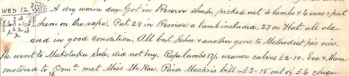 WED 12 A dry warm day. Got in Preserve sheep, picked out 4 lambs & 6 ewes & put
them on the rape. Put 28 in Preserve a lamb included, 27 on flat all old
and in good condition. All but John & another gone to Methodist pic nic.
He went to Sale, did not buy. Rape lambs 17/- weaner calves £2-10. Eva & Mum
motored to met Miss McRae. Paid Mackies bill £2-15 out of £6 cheque